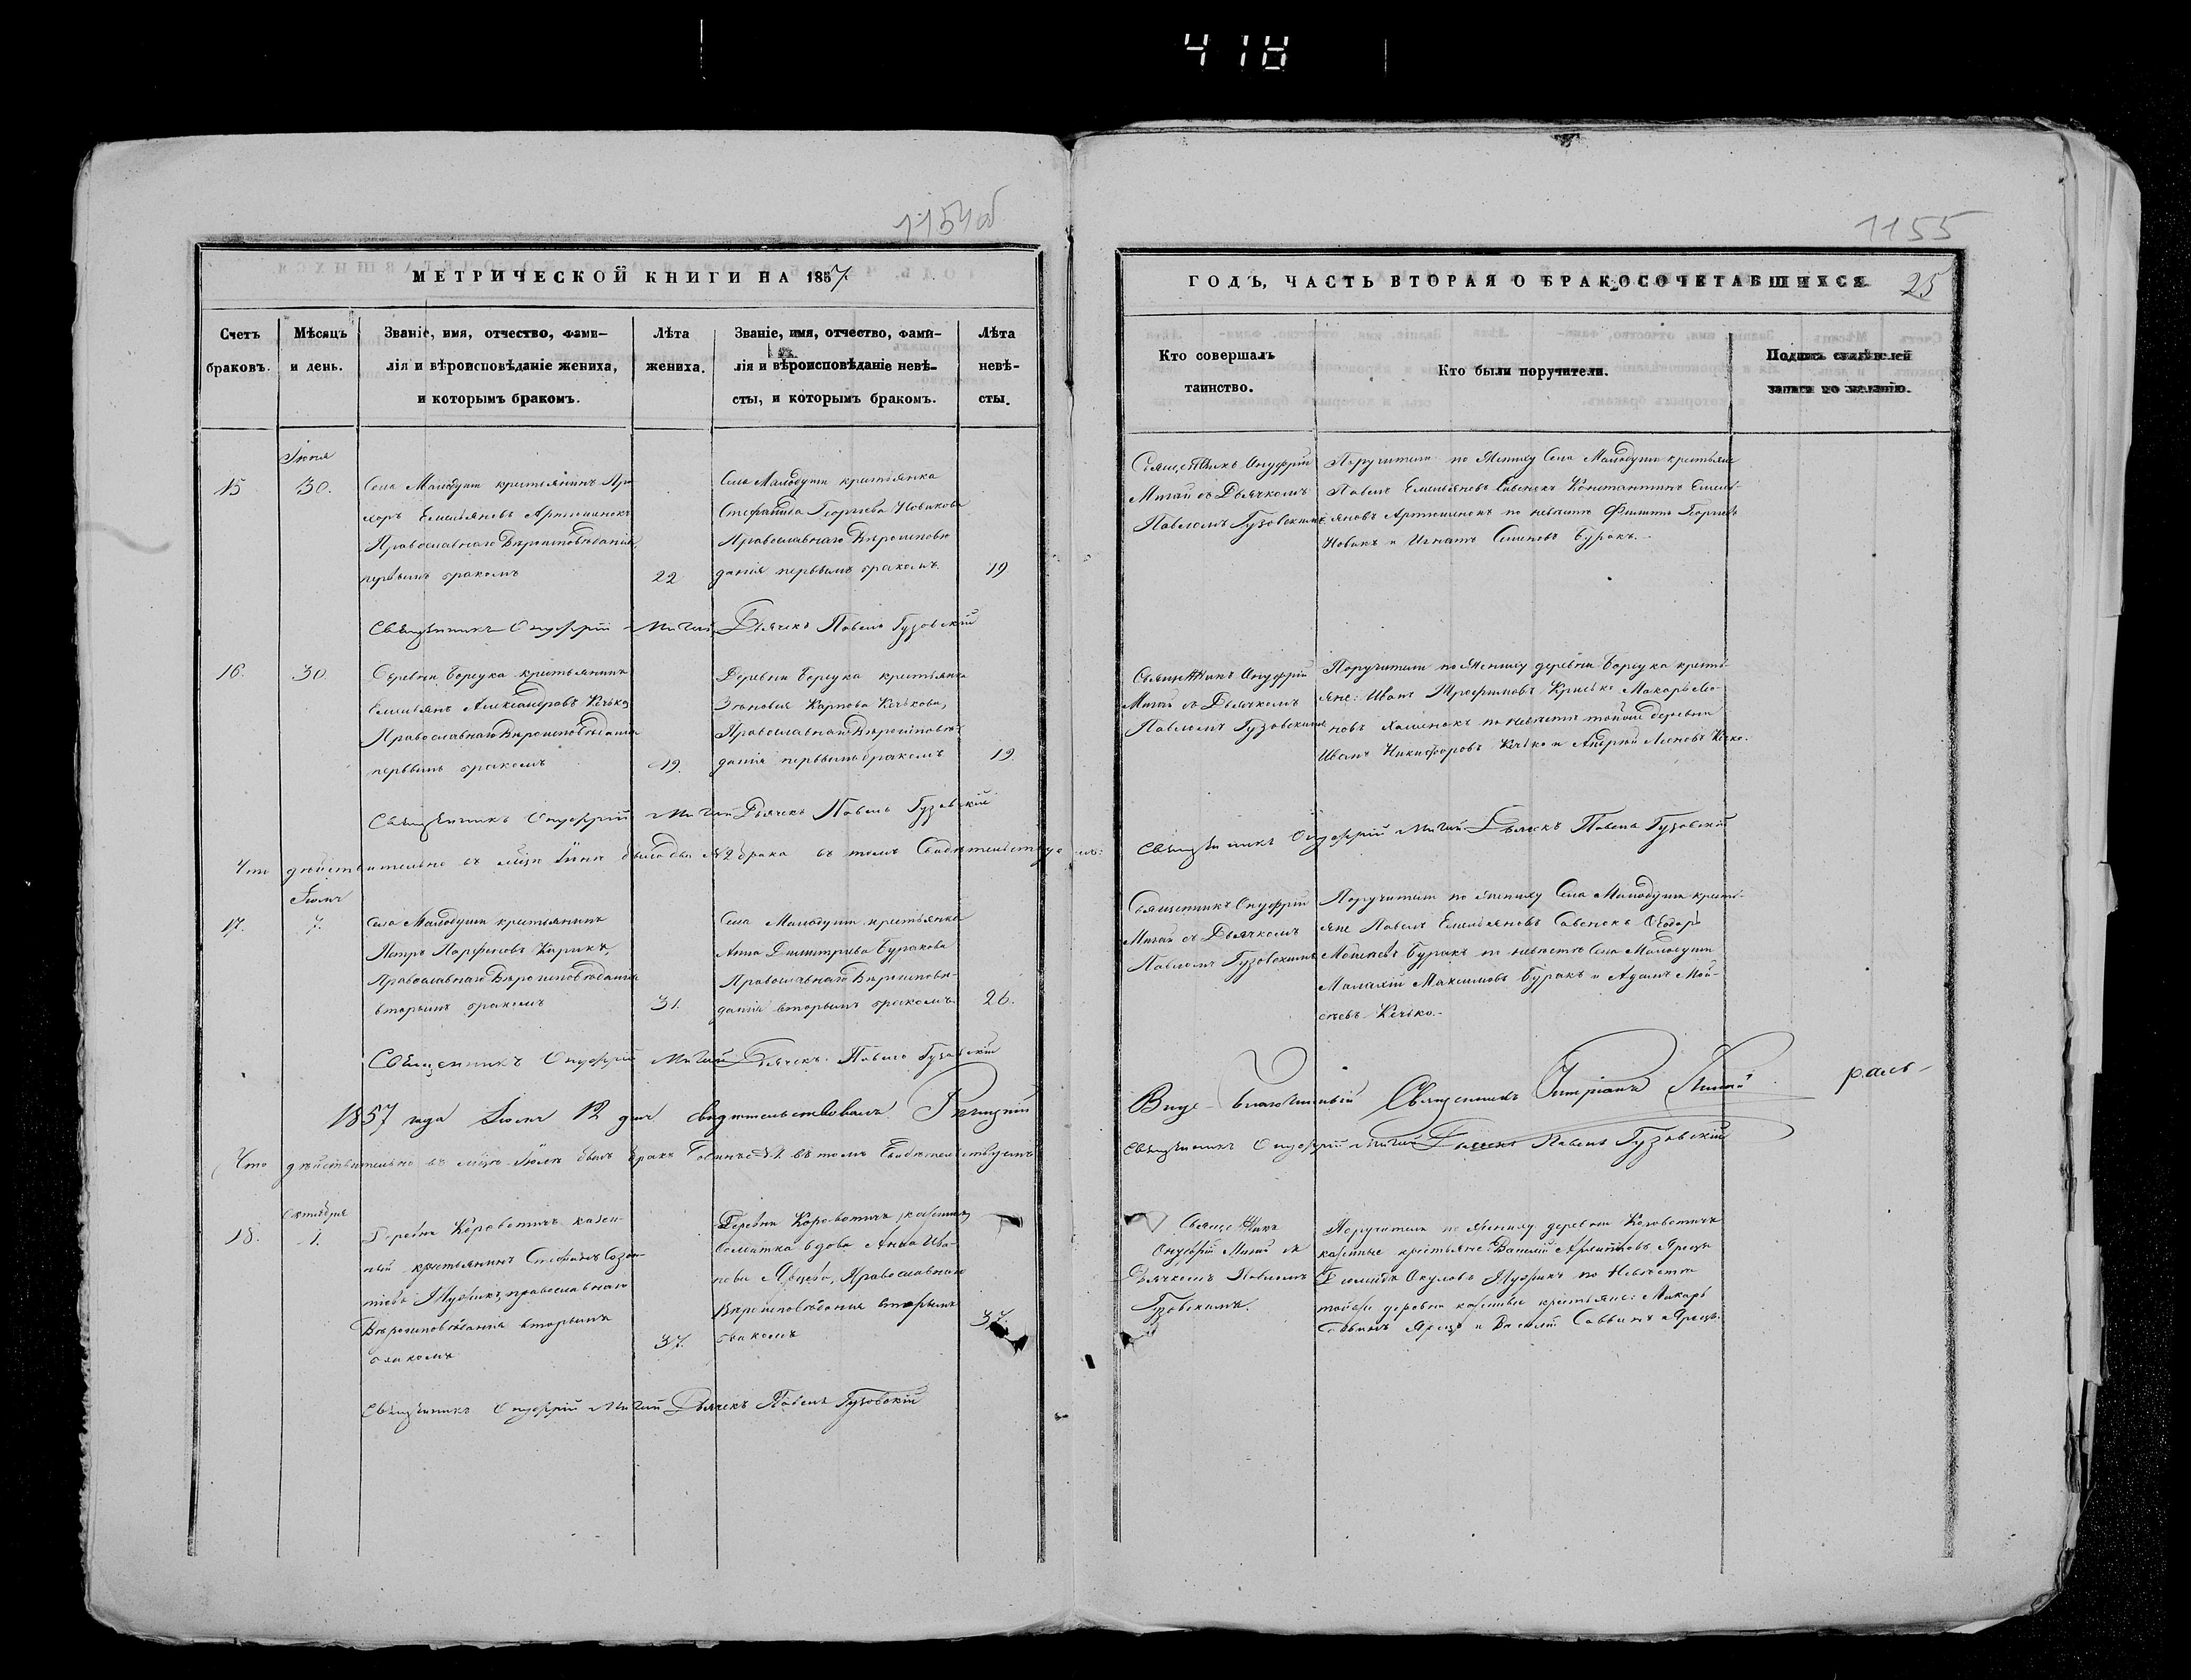 418
1154об
МЕТРИЧЕСКОЙ КНИГИ НА 1857
Счетъ браковъ.
Мѣсяцъ и день.
Званіе, имя, отчество, фами-
лія и вѣроисповѣданіе жениха,
и которымъ бракомъ.
Лѣта жениха.
Званіе, имя, отчество, фами-
лія и вѣроисповѣданіе невѣ-
сты, и которымъ бракомъ.
Лѣта невѣ-
сты.
Іюня
15 30.
Села Малодуши крестьянинъ Про
хоръ Емельяновъ Артюшенокъ
Православнаго Вѣроисповѣданія
первымъ бракомъ
22
Села Малодуши крестьянка
Стефанида Георгіева Новикова
Православнаго Вѣроисповѣ
данія первымъ бракомъ.
19
Священникъ Онуфрій Мигай Дьячекъ Павелъ Гузовскій
16. 30
Деревни Борсука крестьянинъ
Емельянъ Александровъ Кечко
Православнаго Вѣроисповѣданія
первымъ бракомъ
19.
Деревни Борсука крестьянка
Зѣновія Карпова Кечкова,
Православнаго Вѣроисповѣ
данія первымъ бракомъ
19.
Священникъ Онуфрій Мигай Дьячекъ Павелъ Гузовскій
Что дѣйствительно въ мѣсяцѣ Іюнѣ было два № 2 брака въ томъ Свидѣтельствуемъ:
Іюля
17. 7.
Села Малодуши крестьянинъ
Петръ Парфеновъ
Православнаго Вѣроисповѣданія
вторымъ бракомъ
31.
Села Малодуши крестьянка
Анна Димитріева Буракова
Православнаго Вѣроисповѣ-
данія вторымъ бракомъ.
26.
Священникъ Онуфрій Мигай Дьячекъ Павелъ Гузовскій
1857 года Іюля 12 дня свидѣтельствовалъ Рѣчицкій
Что дѣйствительно въ мѣсяцѣ Іюлѣ былъ бракъ Одинъ № 1 въ томъ Свидѣтельствуемъ
Октября
18. 1.
Деревни Короватичъ казен-
ный крестьянинъ Стефанъ Созон-
тіевъ православнаго
Вѣроисповѣданія вторымъ
бракомъ
37.
Деревни Короватичъ казенная
Солдатка вдова Анна Ива-
нова Ярецъ, Православнаго
Вѣроисповѣданія вторымъ
бракомъ
37.
Священникъ Онуфрій Мигай Дьячекъ Павелъ Гузовскій
1155
ГОДЪ, ЧАСТЬ ВТОРАЯ О БРАКОСОЧЕТАВШИХСЯ 25
Кто совершалъ
таинство.
Кто были поручители.
Подпись свидѣтелей
записи по желанію.
Священникъ Онуфрій
Мигай съ Дьячкомъ
Павломъ Гузовскимъ
Поручители по Жениху Села Малодуши крестьяне
Павелъ Емельяновъ Савенокъ Константинъ Емель-
яновъ Артюшенокъ по невѣстѣ Филиппъ Георгіевъ
Новикъ и Игнатъ Семеновъ Буракъ.
Священникъ Онуфрій
Мигай съ Дьячкомъ
Павломъ Гузовскимъ
Поручители по Жениху деревни Борсука кресть-
яне: Иванъ Трофимовъ Макаръ Лео-
новъ по невѣстѣ тойже деревни
Иванъ Никифоровъ Кечко и Андрей Леоновъ Кечко.
Священникъ Онуфрій Мигай Дьячекъ Павелъ Гузовскій
Священникъ Онуфрій
Мигай съ Дьячкомъ
Павломъ Гузовскимъ
Поручители по Жениху Села Малодуши кресть-
яне Павелъ Емельяновъ Савенокъ Ѳеодоръ
Моисеевъ Буракъ по невѣстѣ Села Малодуши
Малахій Максимовъ Буракъ и Адамъ Мои-
сѣевъ Кечко.
Вице-благочинный Священникъ Мигай
Священникъ Онуфрій Мигай Дьячекъ Павелъ Гузовскій
Священникъ
Онуфрій Мигай съ
Дьячкомъ Павломъ
Гузовскимъ.
Поручители по Жениху деревни Короватичъ
казенные крестьяне: Василій Ярецъ
Акуловъ по Невѣстѣ
тойже деревни казенные крестьяне: Макаръ
Саввинъ Ярецъ и Василій Саввинъ Ярецъ.